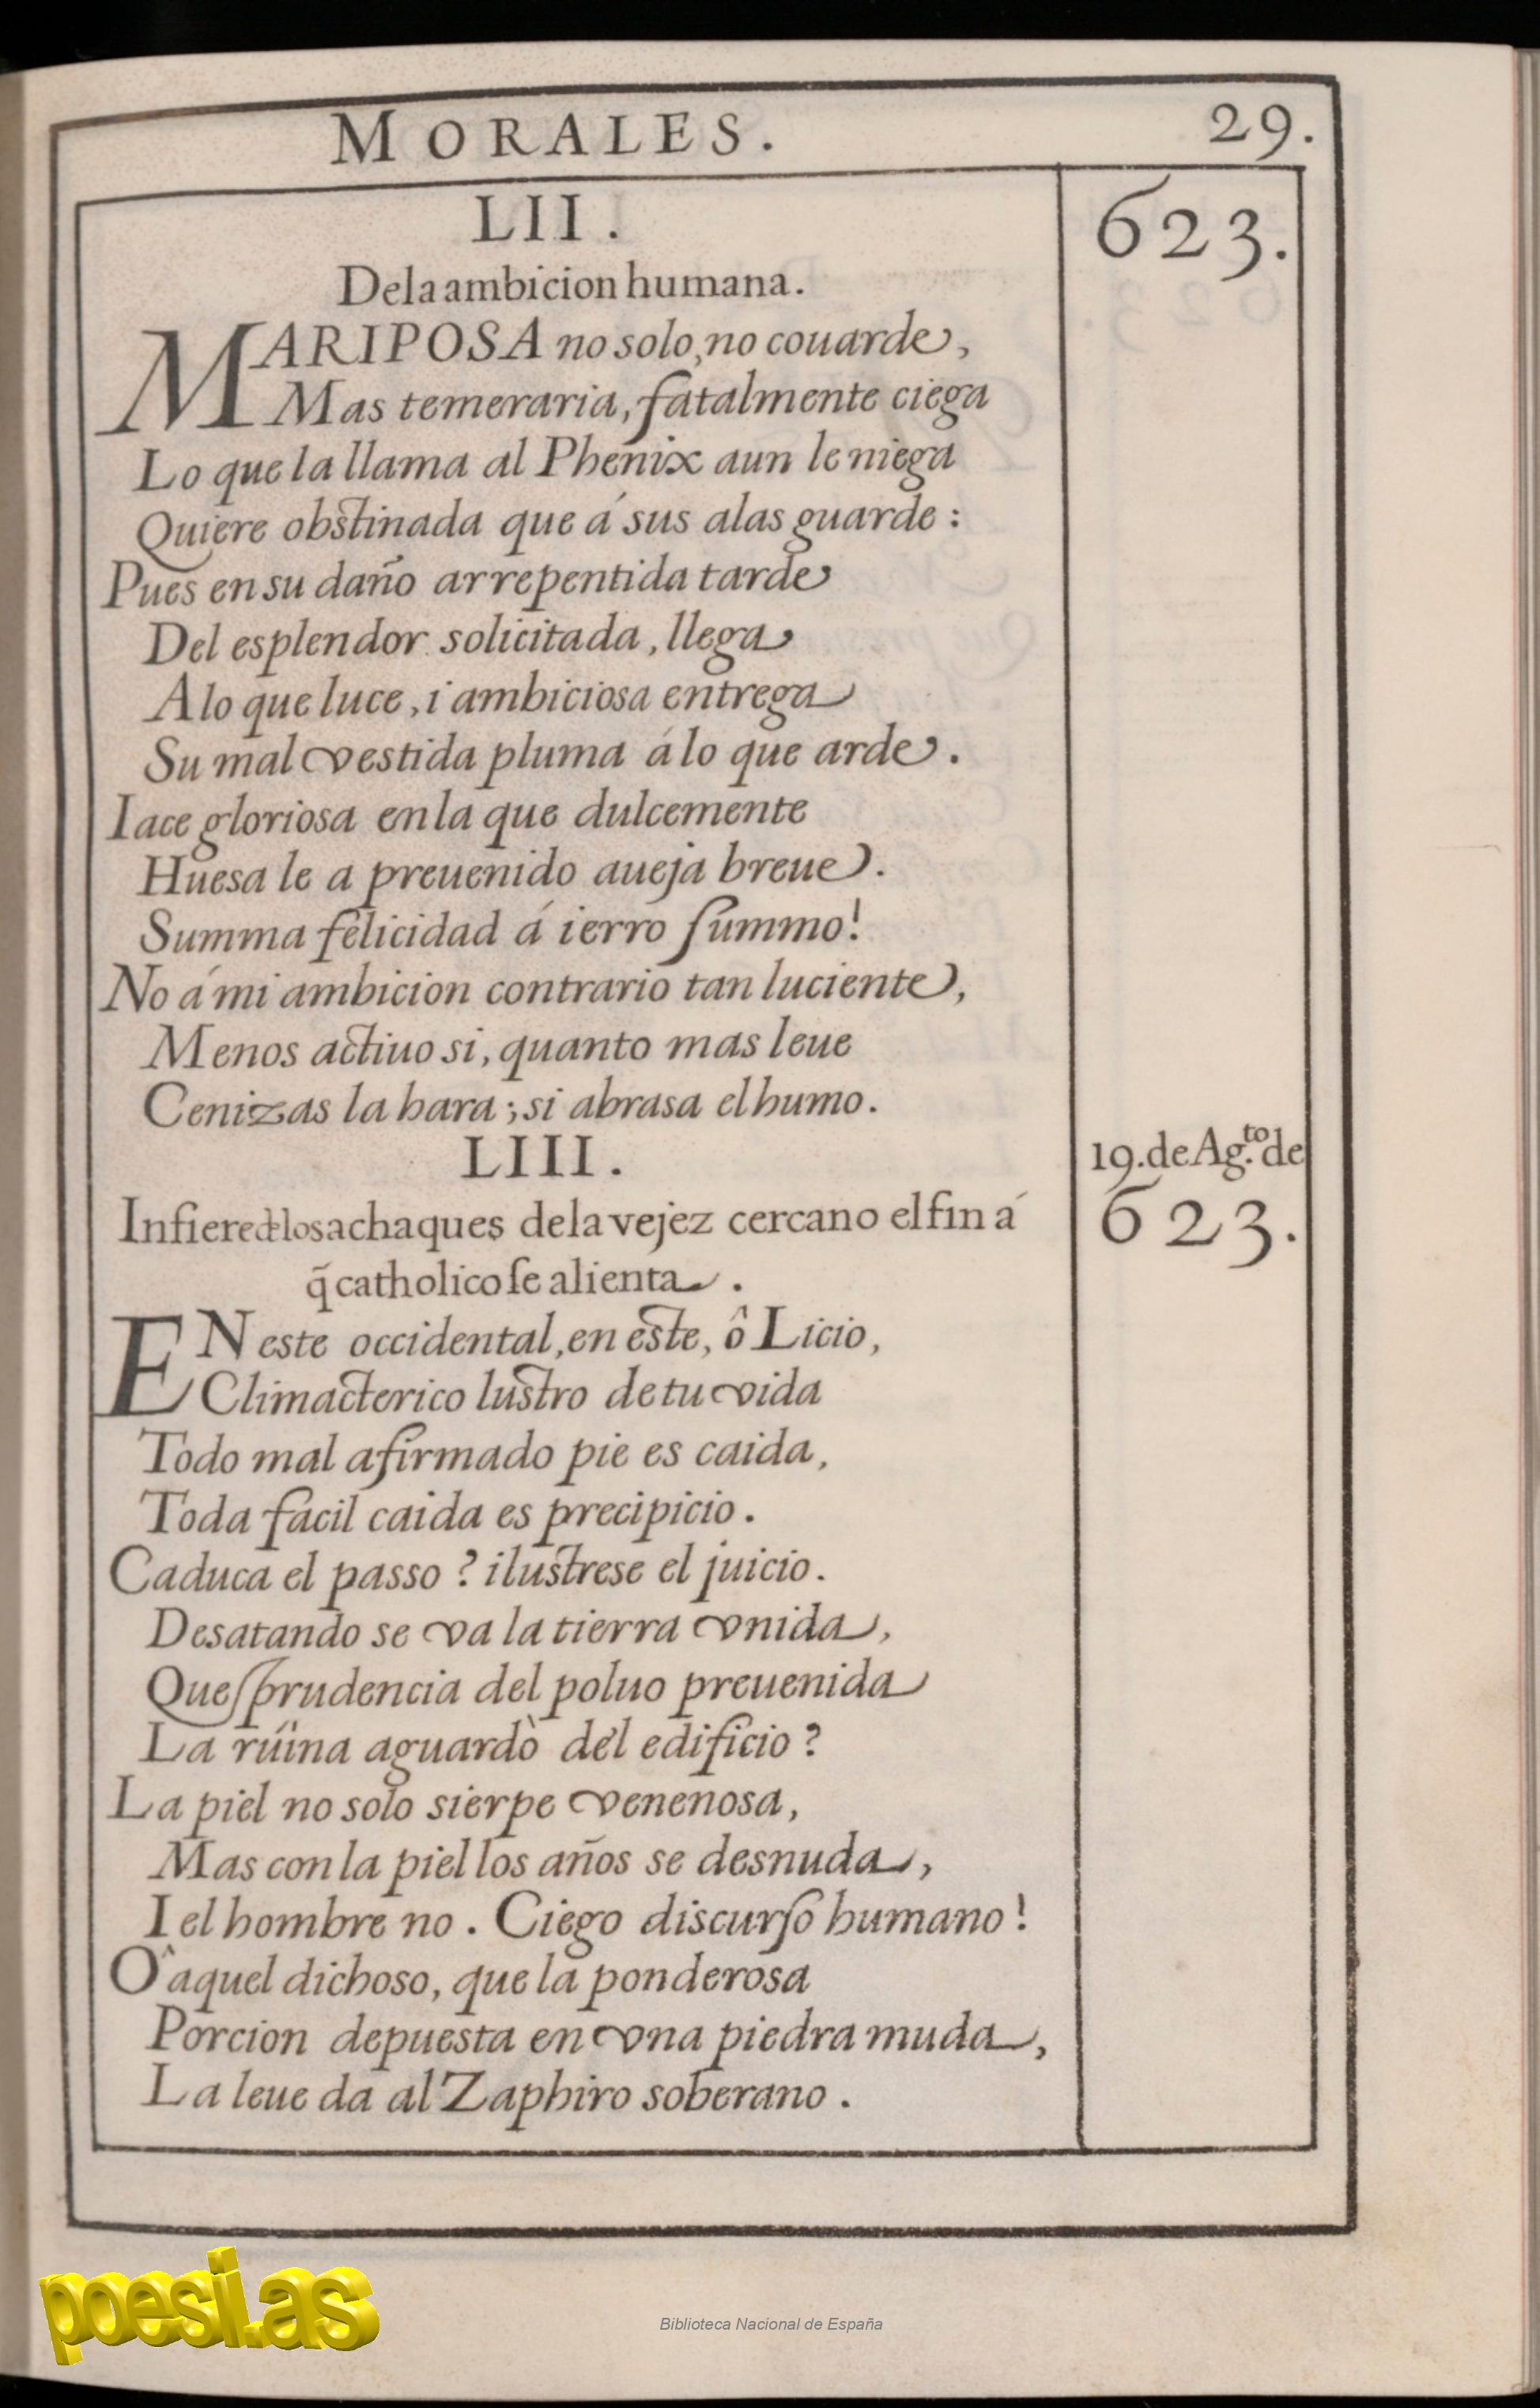 MORALES.
29.
LII.
623.
De la ambicion humana.
MARIPOSA no solo, no couarde,
Mas temeraria, fatalmente ciega
Lo que la llama al Phenix aun le niega
Quiere obstinada que á sus alas guarde:
Pues en su daño arrepentida tarde
Del esplendor solicitada, llega
A lo que luce, i ambiciosa entrega
Su mal vestida pluma á lo que arde.
Iace gloriosa en la que dulcemente
Huesa le a preuenido aueja breue.
Summa felicidad á ierro summo!
No á mi ambicion contrario tan luciente,
Menos actiuo si, quanto mas leue
Cenizas la hara; si abrasa el humo.
LIII.
19. de Ag.to de
623.
Infiere de los achaques de la vejez cercano el fin á
q̃ catholico se alienta.
EN este occidental, en este, ô Licio,
Climacterico lustro de tu vida
Todo mal afirmado pie es caida,
Toda facil caida es precipicio.
Caduca el passo? ilustrese el juicio.
Desatando se va la tierra vnida,
Que prudencia del poluo preuenida
La rúina aguardò del edificio?
La piel no solo sierpe venenosa,
Mas con la piel los años se desnuda,
I el hombre no. Ciego discurso humano!
Ô aquel dichoso, que la ponderosa
Porcion depuesta en vna piedra muda,
La leue da al Zaphiro soberano.
poesi.as
Biblioteca Nacional de España